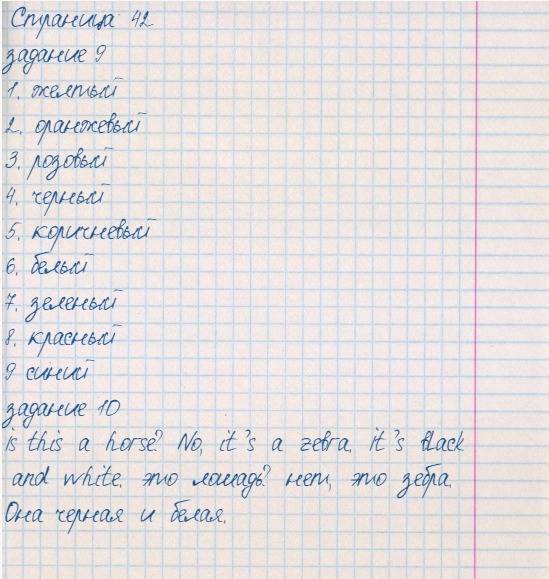 Страница 42
задание 9
1. желтый
2. оранжевый
3. розовый
4. черный
5. коричневый
6. белый
7. зеленый
8. красный
9 синий
задание 10
is this a horse? No, it's a zebra. it's black
and white. это лошадь? нет, это зебра.
Она черная и белая.